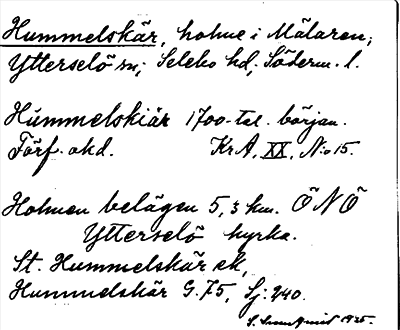 Hummelskär, holme i Mälaren;
Ytterselö sn; Selebo hd, Söderm. l.
Hummelskiär 1700-tal. början.
Förf. okd. Kr A, XX, No 15.
Holmen belägen 5,3 km. ÖNÖ
Ytterselö kyrka.
St. Hummelskär ek,
Hummelskär G.75, Sj: 240.
S. 1925.